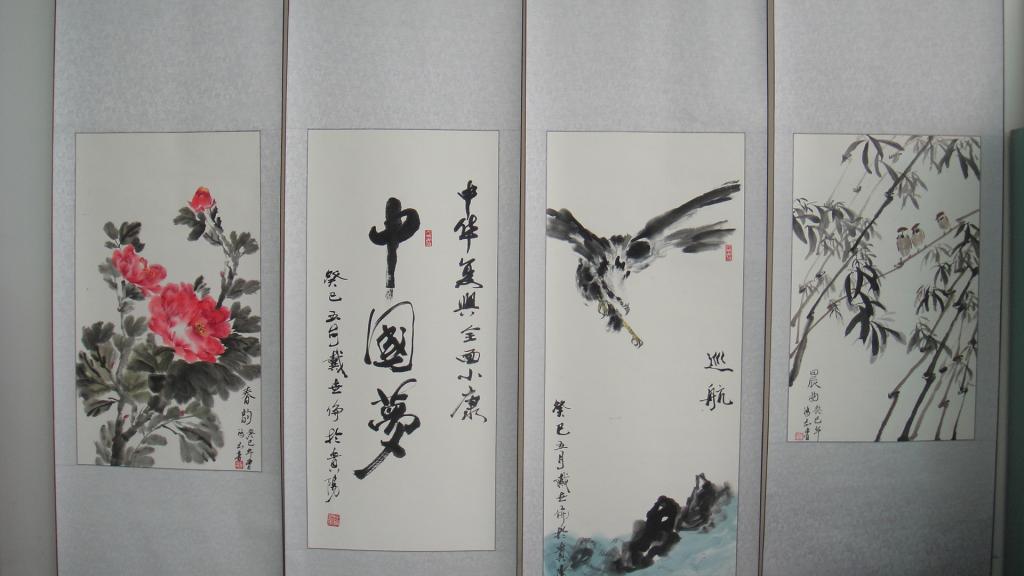 春韵
癸巳年
中國夢
中华复興全面小康
癸巳五月戴世佛於貴陽
巡航
癸巳五月戴世佛於貴
晨曲
癸巳年